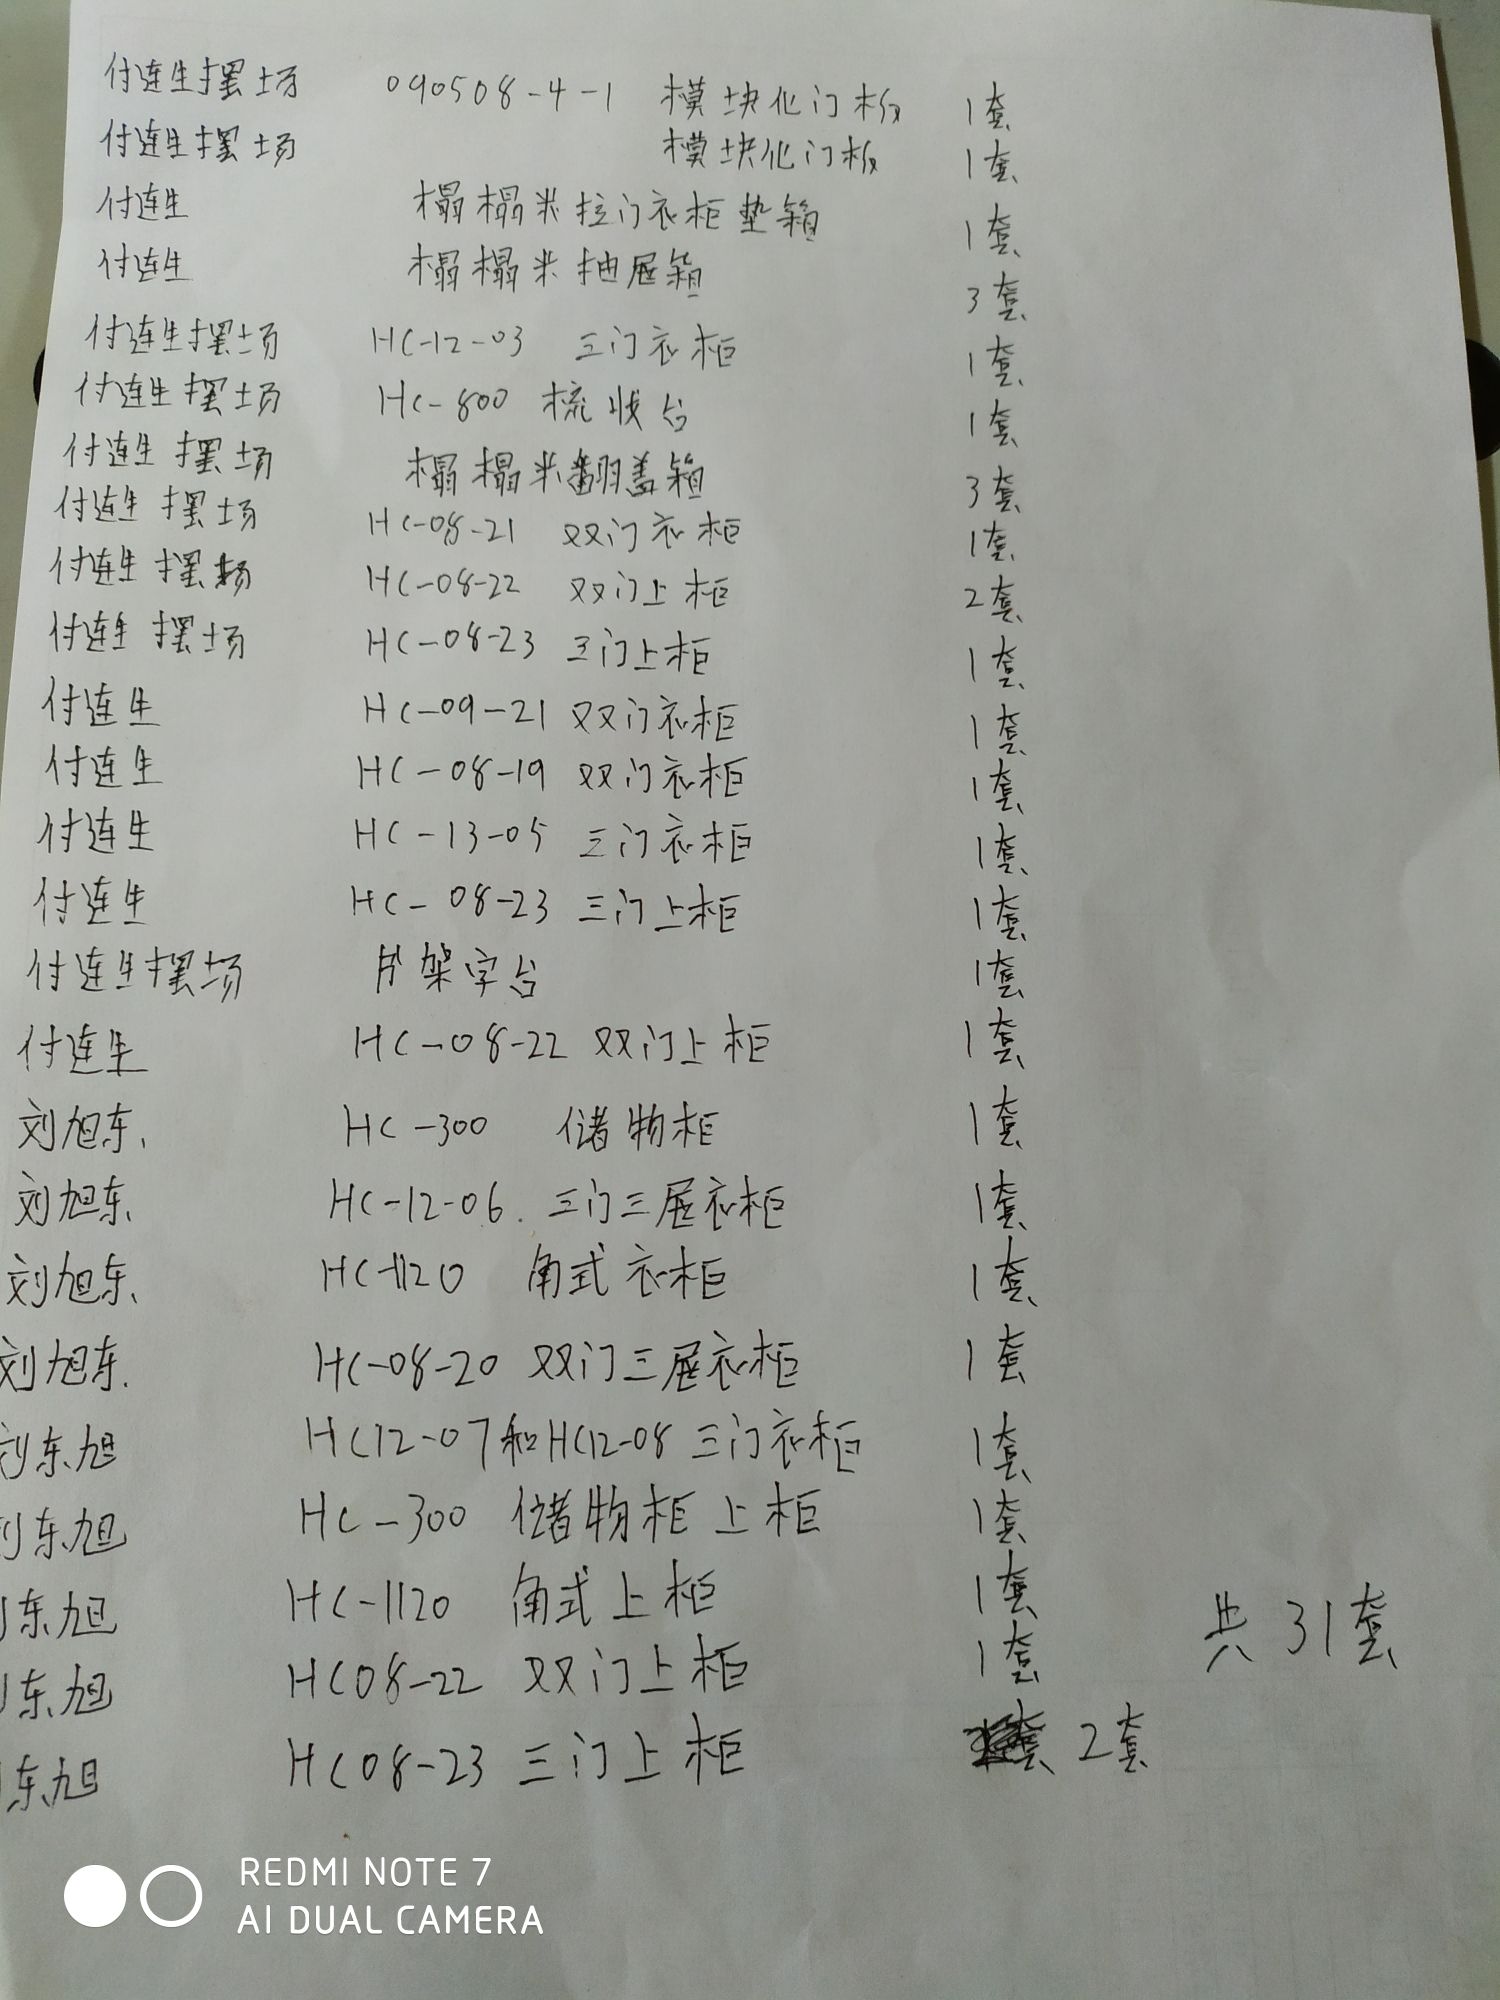 付连生摆场 090508-4-1 模块化门板 1套
付连生摆场 模块化门板 1套
付连生 榻榻米拉门衣柜垫箱 1套
付连生 榻榻米抽屉箱 3套
付连生摆场 HC-12-03 三门衣柜 1套
付连生摆场 HC-800 梳妆台 1套
付连生摆场 榻榻米翻盖箱 3套
付连生摆场 HC-08-21 双门衣柜 1套
付连生摆场 HC-08-22 双门上柜 2套
付连生摆场 HC-08-23 三门上柜 1套
付连生 HC-09-21 双门衣柜 1套
付连生 HC-08-19 双门衣柜 1套
付连生 HC-13-05 三门衣柜 1套
付连生 HC-08-23 三门上柜 1套
付连生摆场 书架字台 1套
付连生 HC-08-22 双门上柜 1套
刘旭东. HC-300 储物柜 1套
刘旭东. HC-12-06. 三门三屉衣柜 1套
刘旭东. HC-1120 角式衣柜 1套
刘旭东. HC-08-20 双门三屉衣柜 1套
刘东旭 HC12-07和HC12-08 三门衣柜 1套
刘东旭 HC-300 储物柜上柜 1套
东旭 HC-1120 角式上柜 1套 共31套
东旭 HC08-22 双门上柜 1套
东旭 HC08-23 三门上柜 2套
REDMI NOTE 7
AI DUAL CAMERA